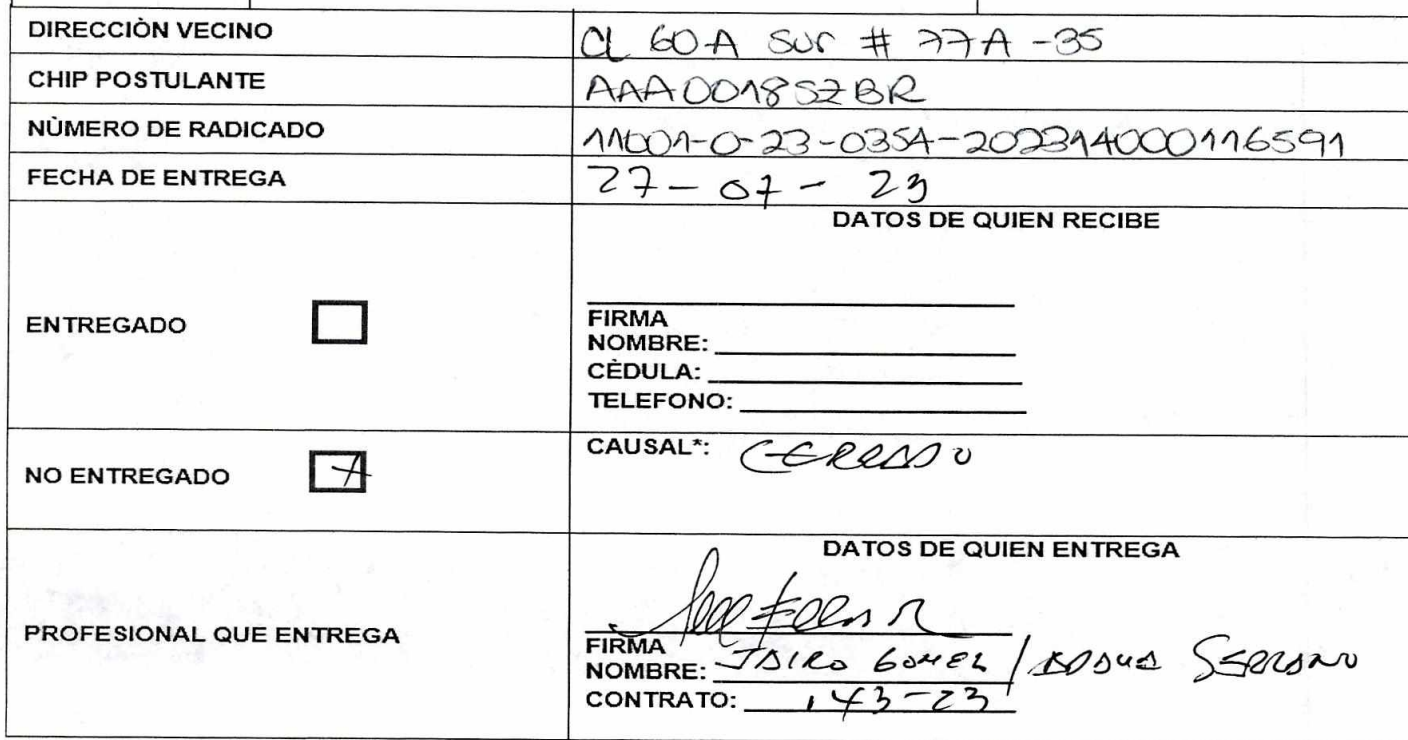 DIRECCIÒN VECINO CL 60A Sur # 77A-35
CHIP POSTULANTE AAA0018SZBR
NÙMERO DE RADICADO 11001-0-23-0354-202314000116591
FECHA DE ENTREGA 27-07-23
DATOS DE QUIEN RECIBE
ENTREGADO
FIRMA
NOMBRE:
CÈDULA:
TELEFONO:
NO ENTREGADO X CAUSAL*: CERRADO
DATOS DE QUIEN ENTREGA
PROFESIONAL QUE ENTREGA
FIRMA
NOMBRE: JAIRO GOMEZ / SERRANO
CONTRATO: 143-23